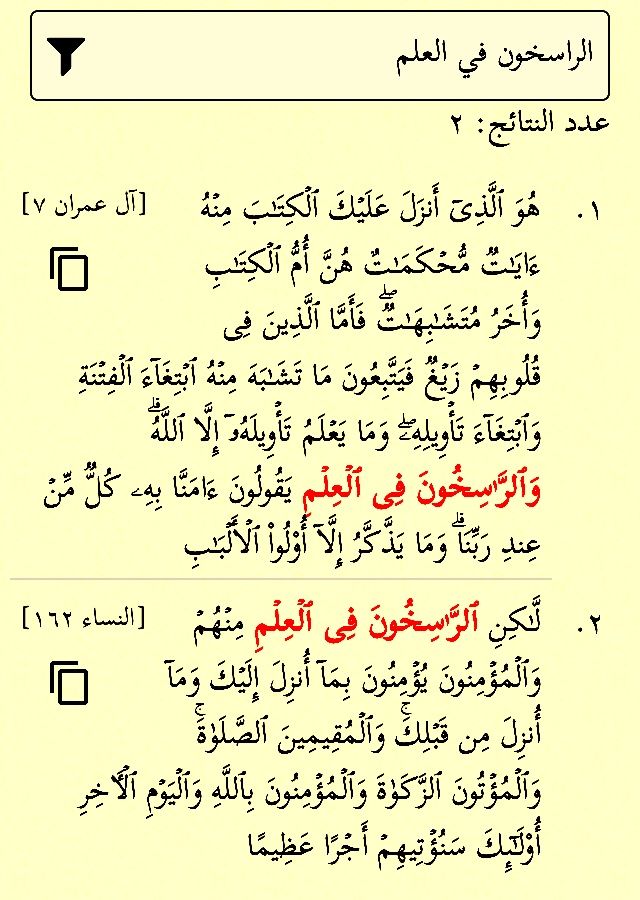 الراسخون في العلم
عدد النتائج: ٢
١. هُوَ ٱلَّذِىٓ أَنزَلَ عَلَيْكَ ٱلْكِتَٰبَ مِنْهُ [آل عمران ٧]
ءَايَٰتٌ مُّحْكَمَٰتٌ هُنَّ أُمُّ ٱلْكِتَٰبِ
وَأُخَرُ مُتَشَٰبِهَٰتٌۖ فَأَمَّا ٱلَّذِينَ فِى
قُلُوبِهِمْ زَيْغٌ فَيَتَّبِعُونَ مَا تَشَٰبَهَ مِنْهُ ٱبْتِغَآءَ ٱلْفِتْنَةِ
وَٱبْتِغَآءَ تَأْوِيلِهِۦۖ وَمَا يَعْلَمُ تَأْوِيلَهُۥٓ إِلَّا ٱللَّهُۗ
وَٱلرَّٰسِخُونَ فِى ٱلْعِلْمِ يَقُولُونَ ءَامَنَّا بِهِۦ كُلٌّ مِّنْ
عِندِ رَبِّنَاۗ وَمَا يَذَّكَّرُ إِلَّآ أُو۟لُوا۟ ٱلْأَلْبَٰبِ
٢. لَّٰكِنِ ٱلرَّٰسِخُونَ فِى ٱلْعِلْمِ مِنْهُمْ [النساء ١٦٢]
وَٱلْمُؤْمِنُونَ يُؤْمِنُونَ بِمَآ أُنزِلَ إِلَيْكَ وَمَآ
أُنزِلَ مِن قَبْلِكَۚ وَٱلْمُقِيمِينَ ٱلصَّلَوٰةَۚ
وَٱلْمُؤْتُونَ ٱلزَّكَوٰةَ وَٱلْمُؤْمِنُونَ بِٱللَّهِ وَٱلْيَوْمِ ٱلْءَاخِرِ
أُو۟لَٰٓئِكَ سَنُؤْتِيهِمْ أَجْرًا عَظِيمًا